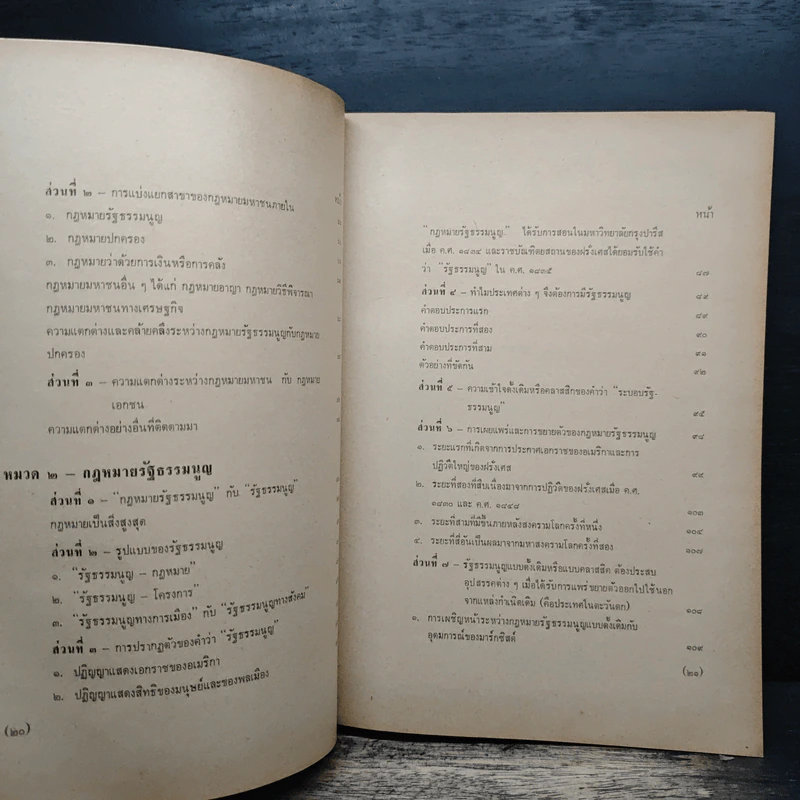 ส่วนที่ ๒ – การแบ่งแยกสาขาของกฎหมายมหาชนภายใน
๑. กฎหมายรัฐธรรมนูญ
๒. กฎหมายปกครอง
๓. กฎหมายว่าด้วยการเงินหรือการคลัง
กฎหมายมหาชนอื่น ๆ ได้แก่ กฎหมายอาญา กฎหมายวิธีพิจารณา
กฎหมายมหาชนทางเศรษฐกิจ
ความแตกต่างและคล้ายคลึงระหว่างกฎหมายรัฐธรรมนูญกับกฎหมาย
ปกครอง
ส่วนที่ ๓ – ความแตกต่างระหว่างกฎหมายมหาชน กับ กฎหมาย
เอกชน
ความแตกต่างอย่างอื่นที่ติดตามมา
หมวด ๒ – กฎหมายรัฐธรรมนูญ
ส่วนที่ ๑ – “กฎหมายรัฐธรรมนูญ” กับ “รัฐธรรมนูญ”
กฎหมายเป็นสิ่งสูงสุด
ส่วนที่ ๒ – รูปแบบของรัฐธรรมนูญ
๑. “รัฐธรรมนูญ – กฎหมาย”
๒. “รัฐธรรมนูญ – โครงการ”
๓. “รัฐธรรมนูญทางการเมือง” กับ “รัฐธรรมนูญทางสังคม”
ส่วนที่ ๓ – การปรากฏตัวของคำว่า “รัฐธรรมนูญ”
๑. ปฏิญญาแสดงเอกราชของอเมริกา
๒. ปฏิญญาแสดงสิทธิของมนุษย์และของพลเมือง
(๒๐)
หน้า
“กฎหมายรัฐธรรมนูญ” ได้รับการสอนในมหาวิทยาลัยกรุงปารีส
เมื่อ ค.ศ. ๑๘๓๔ และราชบัณฑิตยสถานของฝรั่งเศสได้ยอมรับใช้คำ
ว่า “รัฐธรรมนูญ” ใน ค.ศ. ๑๘๓๕ ๘๗
ส่วนที่ ๔ – ทำไมประเทศต่าง ๆ จึงต้องการมีรัฐธรรมนูญ ๘๙
คำตอบประการแรก ๘๙
คำตอบประการที่สอง ๙๐
คำตอบประการที่สาม ๙๑
ตัวอย่างที่ขัดกัน ๙๒
ส่วนที่ ๕ – ความเข้าใจดั้งเดิมหรือคลาสสิกของคำว่า “ระบอบรัฐ-
ธรรมนูญ” ๙๕
ส่วนที่ ๖ – การเผยแพร่และการขยายตัวของกฎหมายรัฐธรรมนูญ ๙๙
๑. ระยะแรกที่เกิดจากการประกาศเอกราชของอเมริกาและการ
ปฏิวัติใหญ่ของฝรั่งเศส ๙๙
๒. ระยะที่สองที่สืบเนื่องมาจากการปฏิวัติของฝรั่งเศสเมื่อ ค.ศ.
๑๘๓๐ และ ค.ศ. ๑๘๔๘ ๑๐๓
๓. ระยะที่สามที่มีขึ้นภายหลังสงครามโลกครั้งที่หนึ่ง ๑๐๔
๔. ระยะที่สี่อันเป็นผลมาจากมหาสงครามโลกครั้งที่สอง ๑๐๗
ส่วนที่ ๗ – รัฐธรรมนูญแบบดั้งเดิมหรือแบบคลาสสิค ต้องประสบ
อุปสรรคต่าง ๆ เมื่อได้รับการแพร่ขยายตัวออกไปใช้นอก
จากแหล่งกำเนิดเดิม (คือประเทศในตะวันตก) ๑๐๘
๑. การเผชิญหน้าระหว่างกฎหมายรัฐธรรมนูญแบบดั้งเดิมกับ
อุดมการณ์ของมาร์กซิสต์ ๑๐๙
(๒๑)